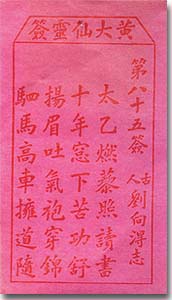 黃大仙靈簽
第八十五簽
古人 劉向得志
太乙燃藜照讀書
十年窓下苦功舒
揚眉吐氣袍穿錦
駟馬高車擁道隨